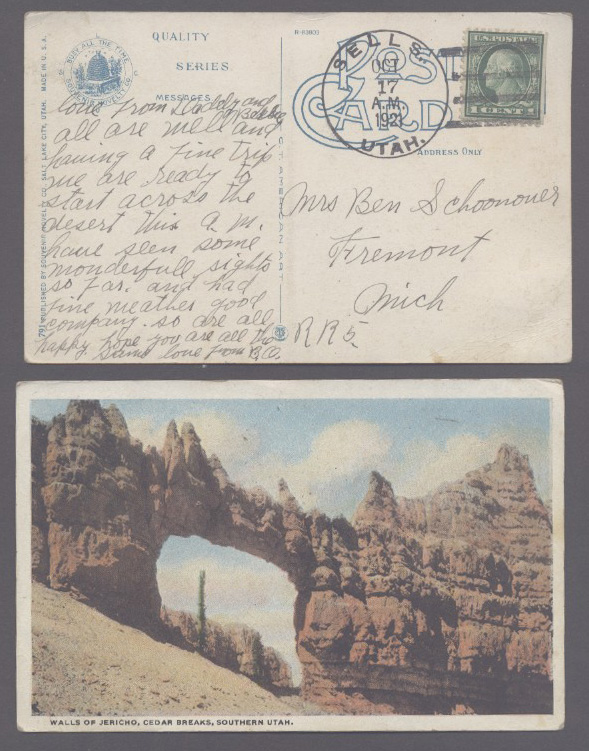 QUALITY
SERIES.
MESSAGES
R-63800
BUSY ALL THE TIME
MADE IN U. S. A.
PUBLISHED BY SOUVENIR NOVELTY CO., SALT LAKE CITY, UTAH.
POST
CARD
ADDRESS ONLY
SELLS.
OCT
17
A.M.
1921
UTAH.
U.S. POSTAGE
love from Daddy and
all are well and
having a fine trip
we are ready to
start across the
desert this a.m.
have seen some
wonderfull sights
so far. and had
fine weather good
company. so are all
happy. hope you are all the
same love from B.O.
Mrs Ben Schoonover
Fremont
Mich
R.R 5.
WALLS OF JERICHO, CEDAR BREAKS, SOUTHERN UTAH.